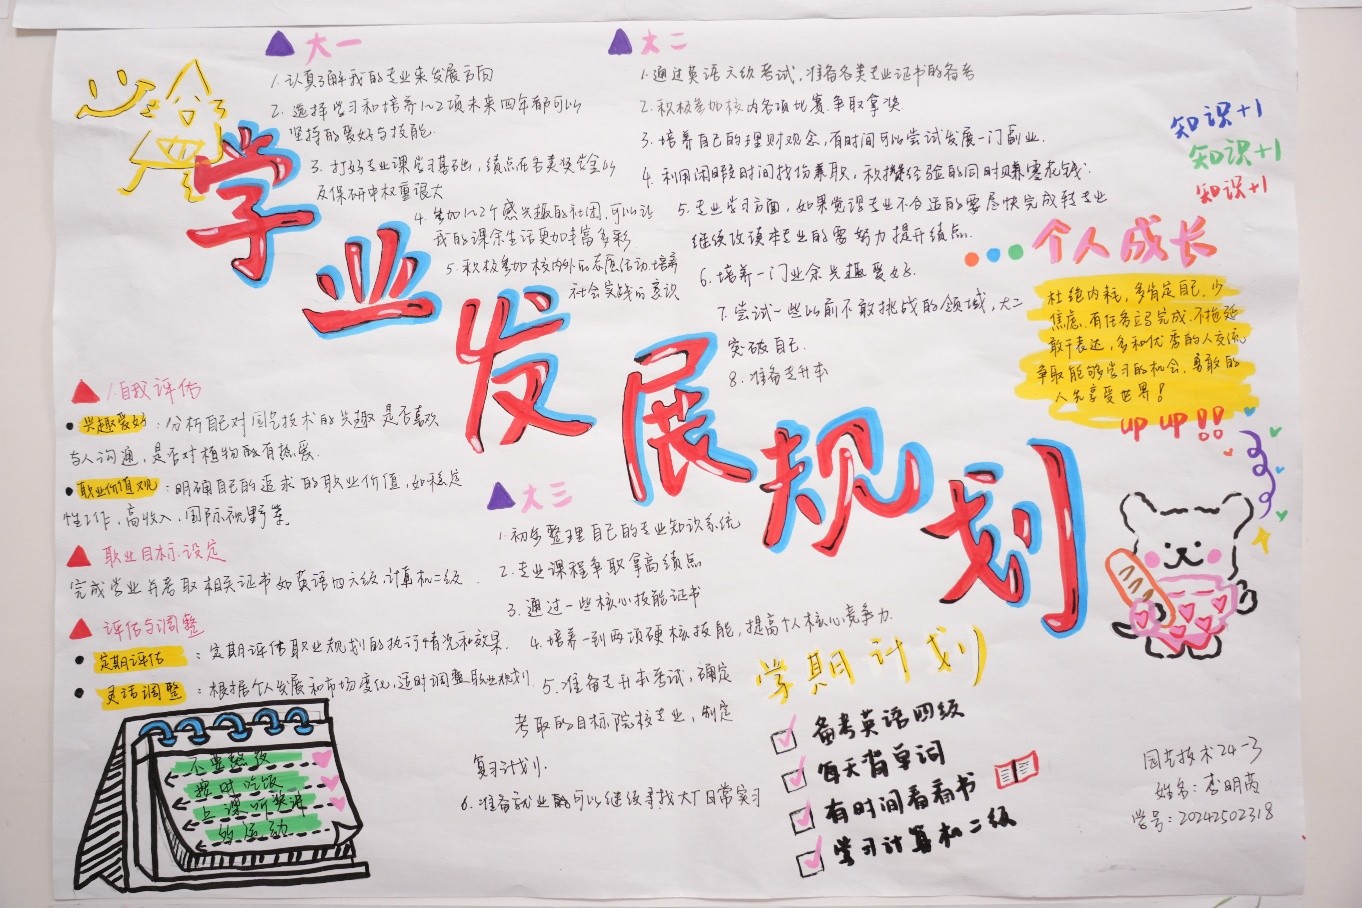 学业发展规划
大一
1. 认真了解我的专业来发展方向
2. 选择学习和培养1~2项未来四年都可以
坚持的爱好与技能.
3. 打好专业课学习基础,绩点在各类奖学金以
及保研中权重很大
4. 参加1~2个感兴趣的社团,可以让
我的课余生活更加丰富多彩
5. 积极参加校内外的志愿活动,培养
社会实践的意识
大二
1. 通过英语六级考试,准备各类专业证书的备考
2. 积极参加校内各项比赛.争取拿奖
3. 培养自己的理财观念,有时间可以尝试发展一门副业.
4. 利用闲暇时间找份兼职,积攒经验的同时赚零花钱.
5. 专业学习方面,如果觉得专业不合适的要尽快完成转专业
继续攻读本专业的需努力提升绩点.
6. 培养一门业余兴趣爱好.
7. 尝试一些以前不敢挑战的领域,大二
突破自己.
8. 准备专升本
知识+1
知识+1
知识+1
个人成长
杜绝内耗,多肯定自己,少
焦虑.有任务立马完成.不拖延
敢于表达,多和优秀的人交流,
争取能够学习的机会,勇敢的
人先享受世界!
up up!!
1.自我评估
兴趣爱好:分析自己对园艺技术的兴趣是否喜欢
与人沟通,是否对植物敢有热爱.
职业价值观:明确自己的追求的职业价值,如稳定
性工作,高收入,国际视野等
职业目标设定
完成学业并考取相关证书如英语四六级,计算机二级.
评估与调整
定期评估:定期评估职业规划的执行情况和效果.
灵活调整:根据个人发展和市场变化,适时调整职业规划.
大三
1. 初步整理自己的专业知识系统
2. 专业课程争取拿高绩点
3. 通过一些核心技能证书
4. 培养一到两项硬核技能,提高个人核心竞争力.
5. 准备专升本考试,确定
考取的目标院校专业,制定
复习计划.
6. 准备就业的可以继续寻找大厂日常实习
不要熬夜
按时吃饭
上课听讲
的运动
学期计划
备考英语四级
每天背单词
有时间看看书
学习计算机二级
园艺技术24-3
姓名:
学号:20242502318